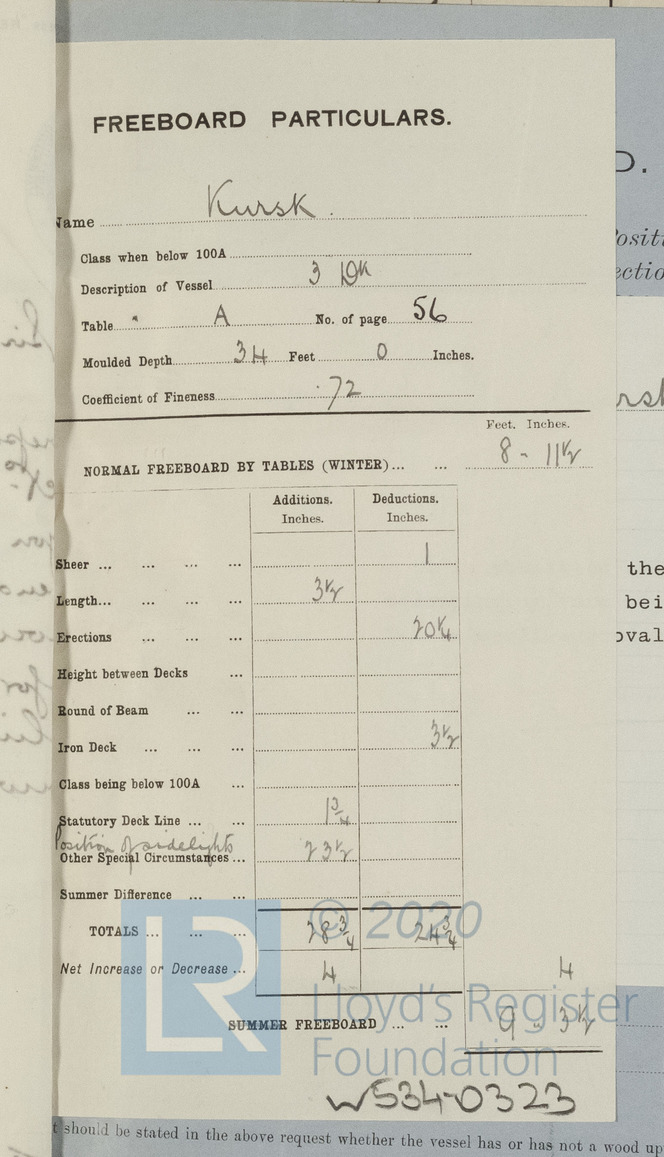 FREEBOARD PARTICULARS.
Name Kursk.
Class when below 100A
Description of Vessel 3 Dk
Table " A No. of page 56
Moulded Depth 34 Feet 0 Inches.
Coefficient of Fineness .72
Feet. Inches.
NORMAL FREEBOARD BY TABLES (WINTER)... ... 8 - 11½
Additions. Deductions.
Inches. Inches.
Sheer ... ... ... ... 1
Length... ... ... ... 3½
Erections ... ... ... 20¼
Height between Decks ...
Round of Beam ... ...
Iron Deck ... ... ... 3½
Class being below 100A ...
Statutory Deck Line ... ... 1¾
Position of sidelights
Other Special Circumstances ... 23½
Summer Difference ... ...
TOTALS ... ... ... 28¾ 24¾
Net Increase or Decrease ... 4 4
SUMMER FREEBOARD ... ... 9 - 3½
© 2020
LR
Lloyd's Register
Foundation
W534-0323
t should be stated in the above request whether the vessel has or has not a wood up
D.
the
bei
oval